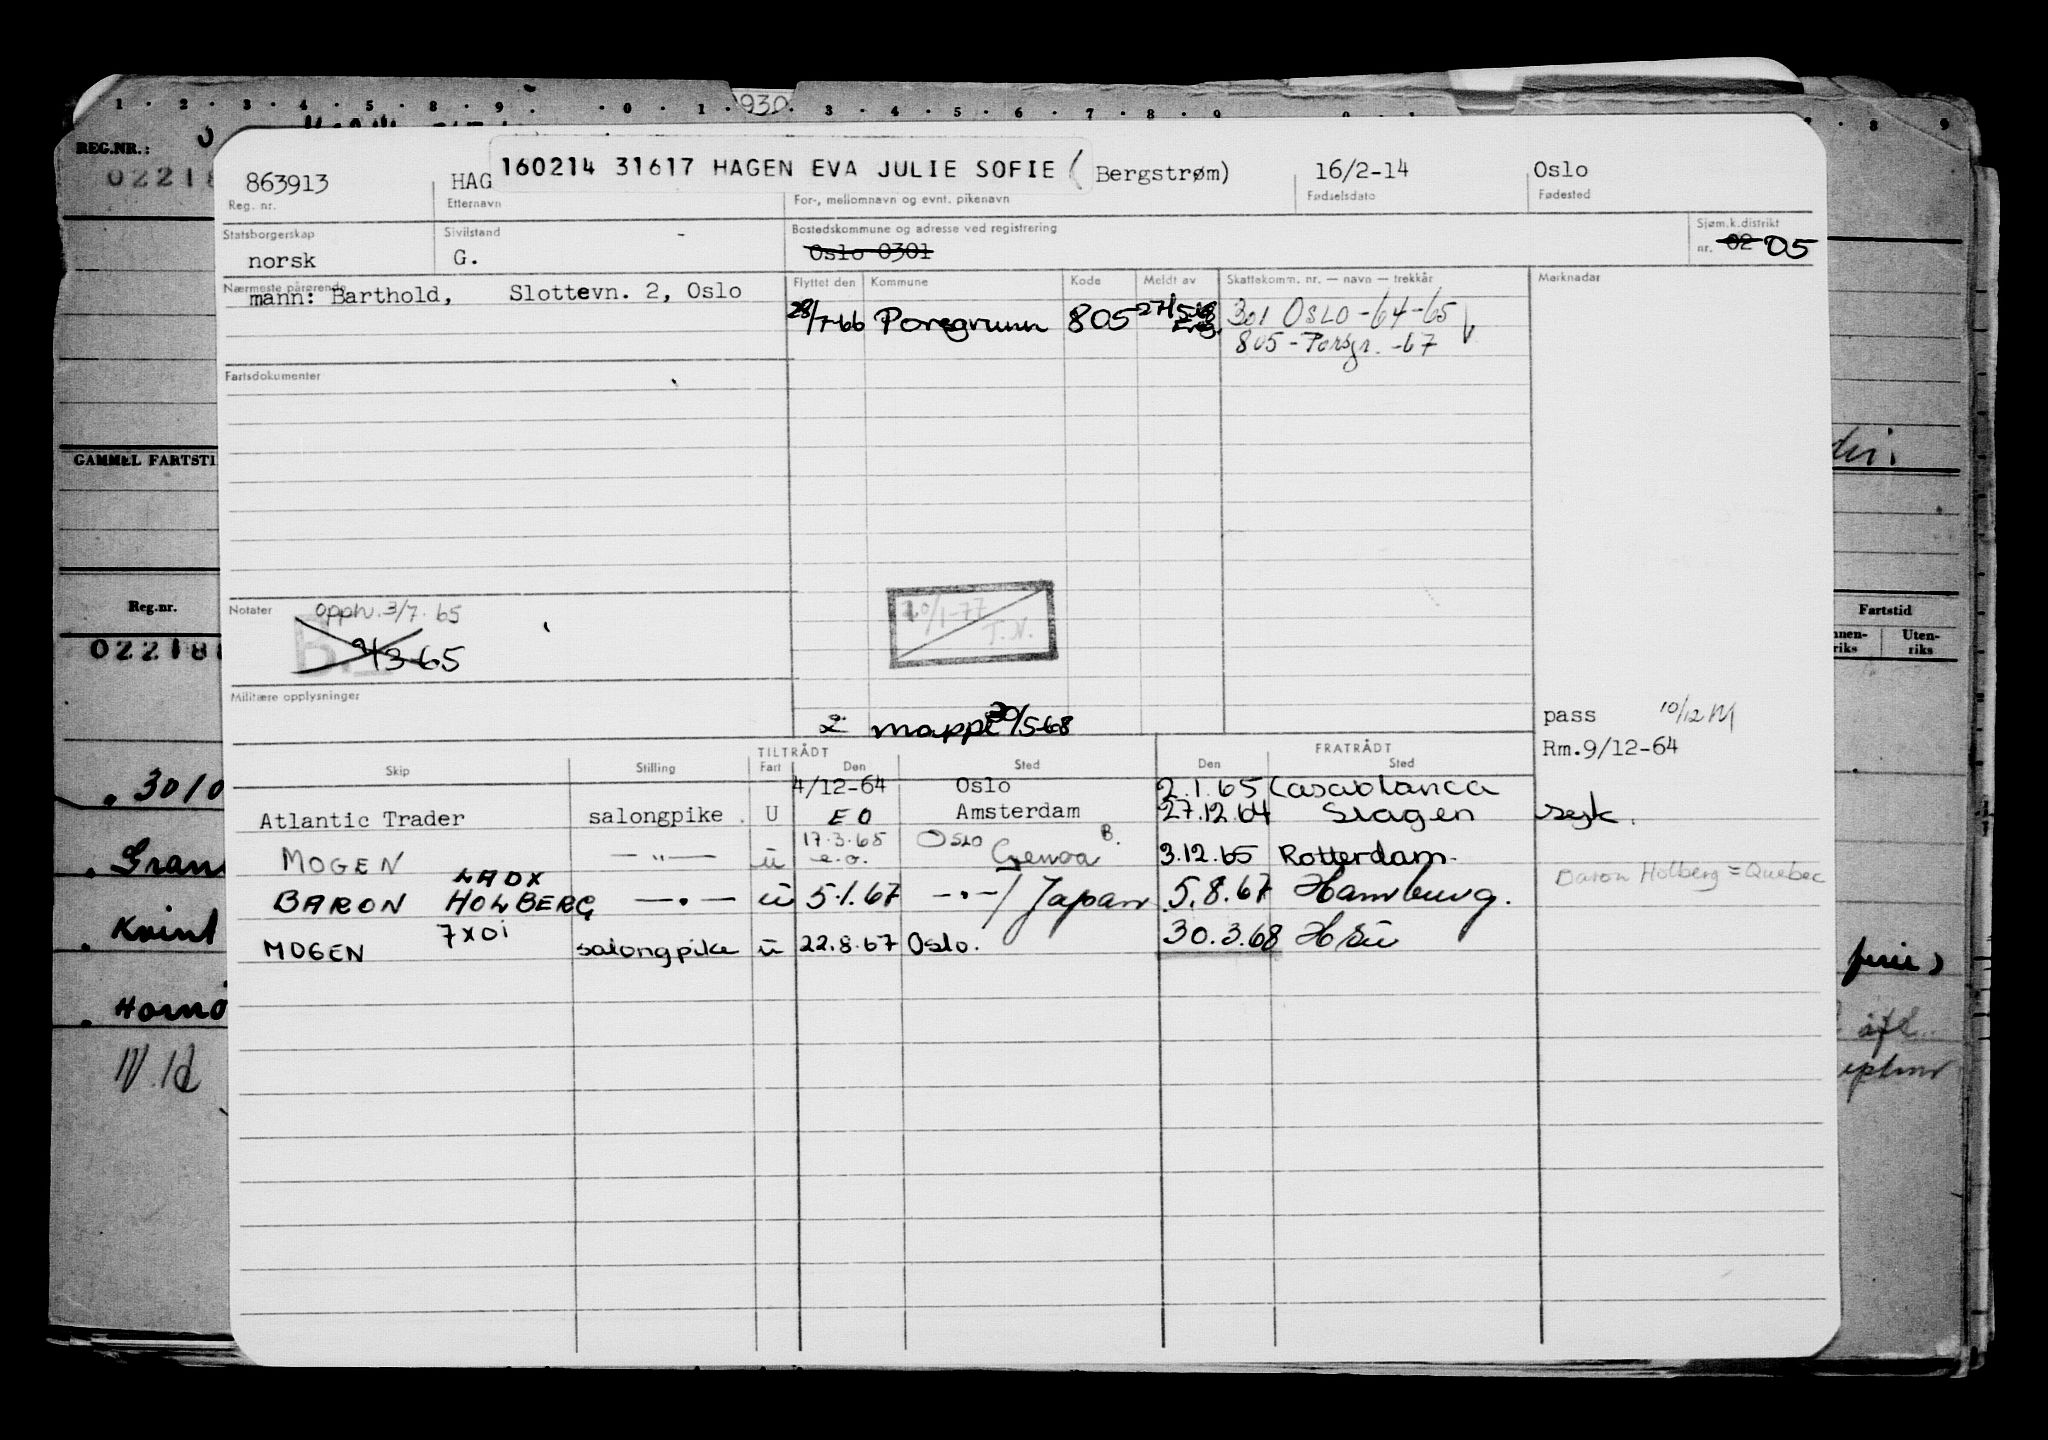 1 · 2 · 3 · 4 · 5 · 8 · 9 · · 0 · 1 · 930 · 3 · 4 · 5 · 6 · 7 · 8 · 9 8 9
REG.NR.:
02218
863913 HAG 160214 31617 HAGEN EVA JULIE SOFIE (Bergstrøm) 16/2-14 Oslo
Reg. nr. Etternavn For-, mellomnavn og evnt. pikenavn Fødselsdato Fødested
Statsborgerskap Sivilstand Bostedskommune og adresse ved registrering Sjøm.k.distrikt
norsk G. Oslo 0301 nr. 02 05
Nærmeste pårørende Flyttet den Kommune Kode Meldt av Skattekomm. nr. — navn — trekkår Merknader
mann: Barthold, Slottevn. 2, Oslo
28/7-66 Porsgrunn 805 301 OSLO -64-65
805 - Porsgr. -67
Fartsdokumenter
GAMMEL FARTSTI
Reg.nr. Fartstid
Notater Opph. 3/7. 65 20/1-77
T.N.
02218 nnen-riks Uten-riks
Militære opplysninger
2 mappe 30/5-68 pass 10/12
Rm.9/12-64
TILTRÅDT FRATRÅDT
Skip Stilling Fart Den Sted Den Sted
4/12-64 Oslo 2.1.65 Casablanca
Atlantic Trader salongpike . U EO Amsterdam 27.12.64 Slagen
17.3.65 Oslo B.
MOGEN — " — u e.o. Genoa 3.12.65 Rotterdam.
LADX Baron Holberg = Quebec
BARON HOLBERG — " — u 5.1.67 — " — / Japan 5.8.67 Hamburg.
7XOI
MOGEN salongpike u 22.8.67 Oslo. 30.3.68
. 3010
. Gran
. Kvint
. Hornø